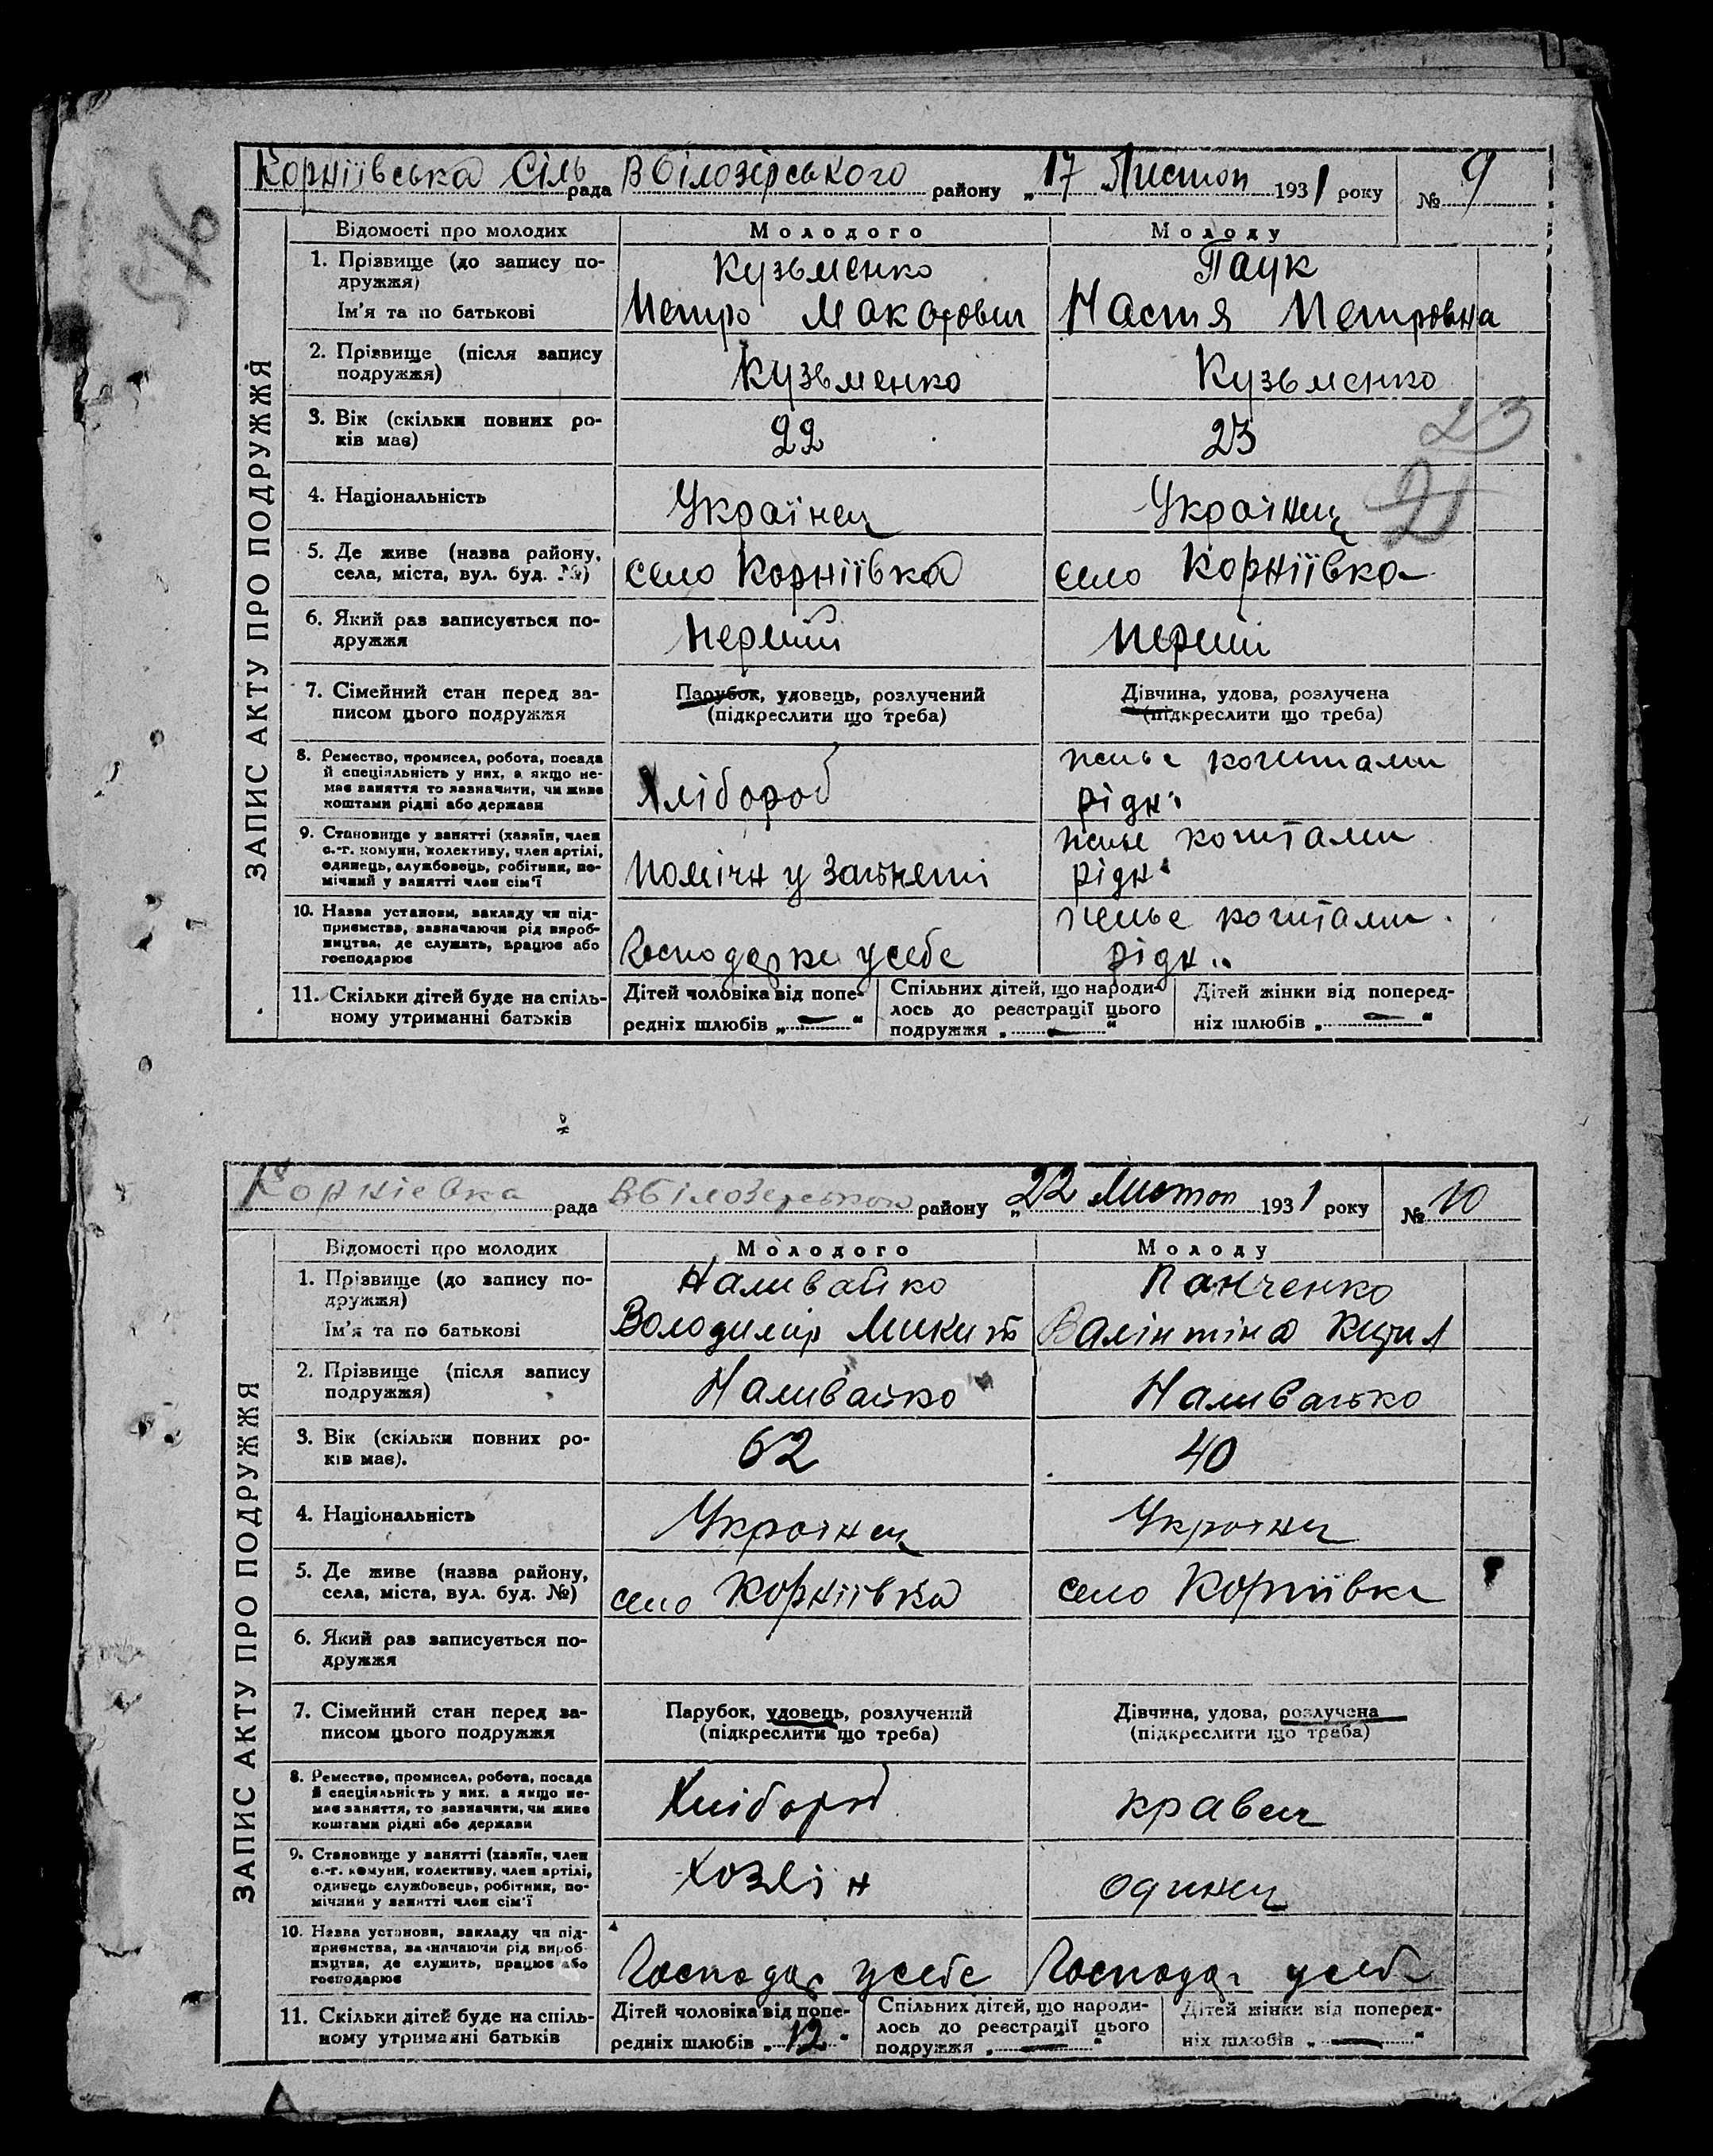 Корніївська Сіль рада Вбілозірського району „17 Листоп 1931 року № 9
ЗАПИС АКТУ ПРО ПОДРУЖЖЯ
Відомості про молодих Молодого Молоду
1. Прізвище (до запису по- Кузьменко Паук
дружжя)
Ім'я та по батькові Петро Макарович Настя Петровна
2. Прізвище (після запису
подружжя) Кузьменко Кузьменко
3. Вік (скільки повних ро- 23
ків має) 22 23
4. Національність Українец Українец
5. Де живе (назва району,
села, міста, вул. буд. №) село Корніївка село Корніївка
6. Який раз записується по-
дружжя перший перший
7. Сімейний стан перед за- Парубок, удовець, розлучений Дівчина, удова, розлучена
писом цього подружжя (підкреслити що треба) (підкреслити що треба)
8. Ремество, промисел, робота, посада
й спеціяльність у них, а якщо не-
має заняття то зазначити, чи живе
коштами рідні або держави Хлібороб коштами рідн.
9. Становище у занятті (хазяїн, член
с.-г. комуни, колективу, член артілі,
одинець, службовець, робітник, по-
мічний у занятті член сім'ї помічн у занятті коштами рідн.
10. Назва установи, закладу чи під-
приємства, зазначаючи рід вироб-
ництва, де служить, працює або
господарює усебе коштами рідн..
11. Скільки дітей буде на спіль- Дітей чоловіка від попе- Спільних дітей, що народи- Дітей жінки від поперед-
ному утриманні батьків редніх шлюбів „—“ лось до реєстрації цього ніх шлюбів „—“
подружжя „—“
Корнієвка рада району „22 Листоп 1931 року № 10
ЗАПИС АКТУ ПРО ПОДРУЖЖЯ
Відомості про молодих Молодого Молоду
1. Прізвище (до запису по- Наливайко Панченко
дружжя)
Ім'я та по батькові Володимір Микит Валінтіна
2. Прізвище (після запису
подружжя) Наливайко Наливайко
3. Вік (скільки повних ро-
ків має). 62 40
4. Національність Українец Українец
5. Де живе (назва району,
села, міста, вул. буд. №) село Корніївка село Корніївка
6. Який раз записується по-
дружжя
7. Сімейний стан перед за- Парубок, удовець, розлучений Дівчина, удова, розлучена
писом цього подружжя (підкреслити що треба) (підкреслити що треба)
8. Ремество, промисел, робота, посада
й спеціяльність у них, а якщо не-
має заняття, то зазначити, чи живе
коштами рідні або держави Хлібороб кравец
9. Становище у занятті (хазяїн, член
с.-г. комуни, колективу, член артілі,
одинець службовець, робітник, по-
мічний у занятті член сім'ї Хозяін одинец
10. Назва установи, закладу чи під-
приємства, зазначаючи рід вироб-
ництва, де служить, працює або
господарює Господар усебе Господар усебе
11. Скільки дітей буде на спіль- Дітей чоловіка від попе- Спільних дітей, що народи- Дітей жінки від поперед-
ному утриманні батьків редніх шлюбів „12“ лось до реєстрації цього ніх шлюбів „—“
подружжя „—“